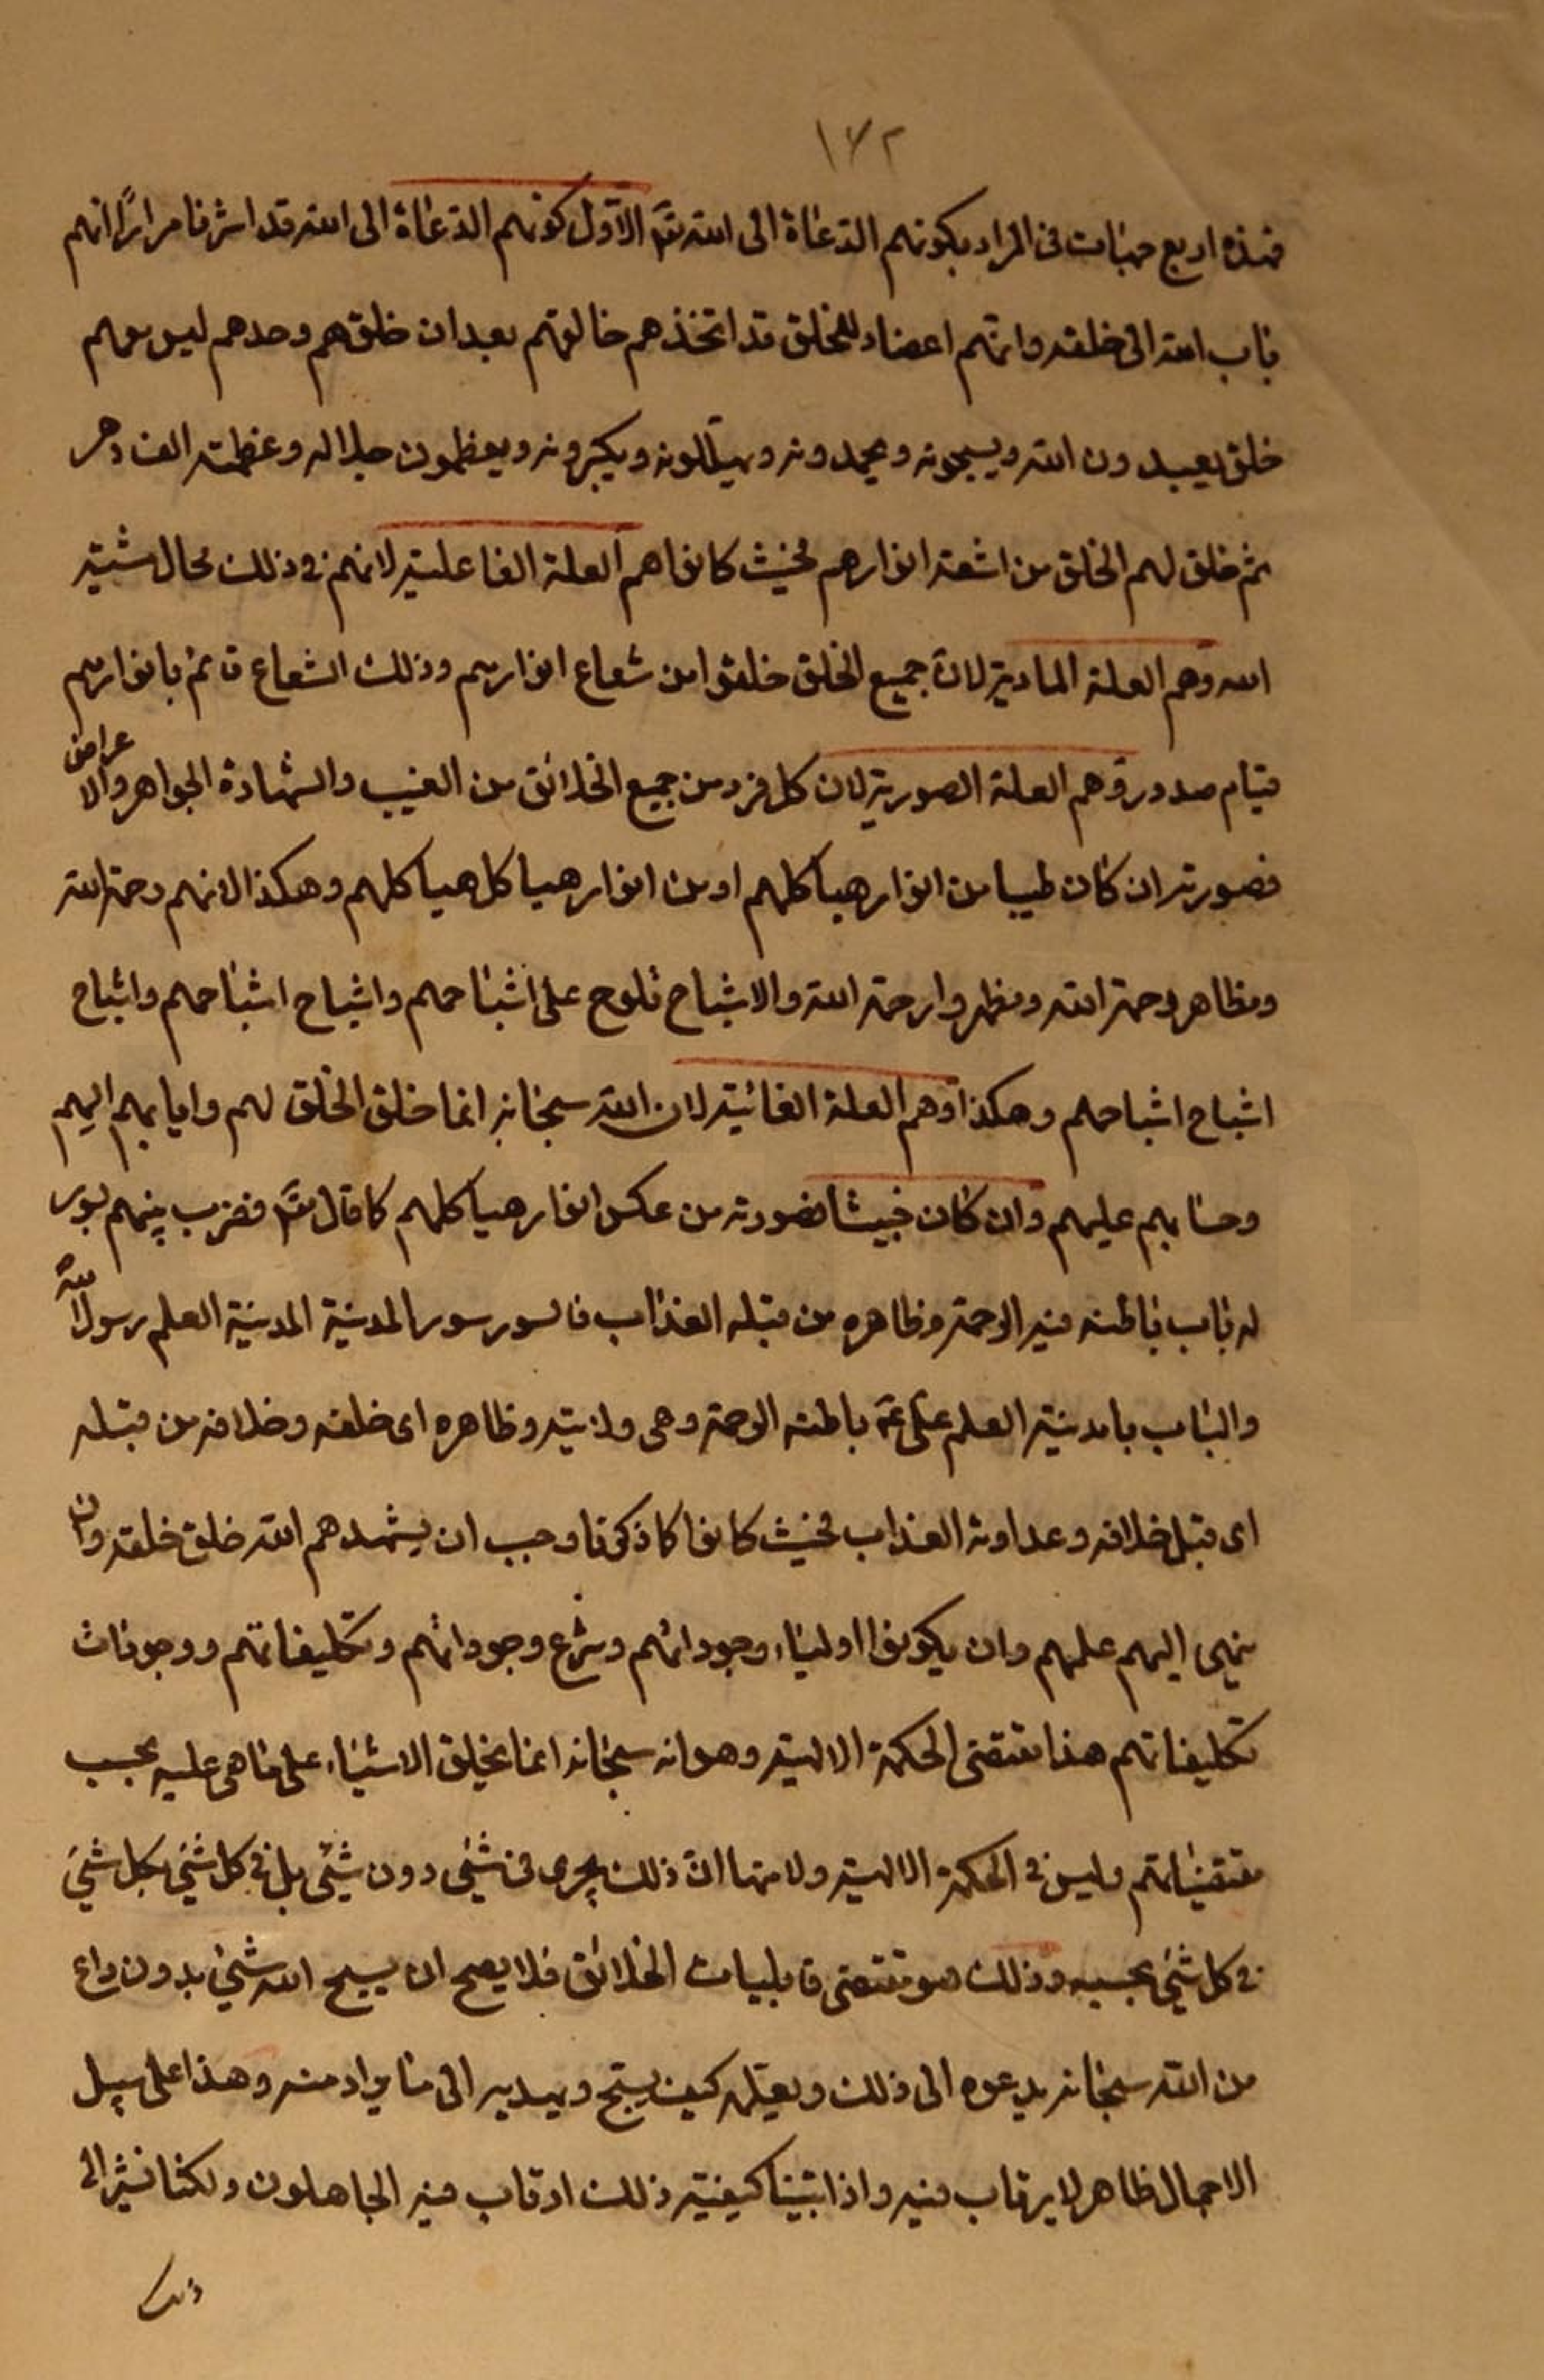 ١٧٢
فهذه اربع جهات فى المراد بكونهم الدعاة الى الله تع الاول كونهم الدعاة الى الله قد اشرنا مرارًا انهم
باب الله الى خلقه وانهم اعضاد للخلق قد اتخذهم خالقهم بعد ان خلقهم وحدهم ليس معهم
خلق يعبدون الله ويسبحونه ويحمدونه ويهللونه ويكبرونه ويعظمون جلاله وعظمته الف دهر
ثم خلق لهم الخلق من اشعة انوارهم فحيث كانوا هم العلة الفاعلية لانهم فى ذلك محال مشية
الله وهم العلة المادية لان جميع الخلق خلقوا من شعاع انوارهم وذلك الشعاع قائم بانوارهم
قيام صدور وهم العلة الصورية لان كل فرد من جميع الخلائق من الغيب والشهادة الجواهر والاعراض
فصورته ان كان طيبا من انوار هياكلهم او من انوار هياكل هياكلهم وهكذا لانهم رحمة الله
ومظاهر رحمة الله ومظهروا رحمة الله والاشباح تلوح على اشباحهم واشباح اشباحهم واشباح
اشباح اشباحهم وهكذا وهم العلة الغائية لان الله سبحانه انما خلق الخلق لهم وايابهم اليهم
وحسابهم عليهم وان كان خبيثا فصورته من عكس انوار هياكلهم كما قال تع فضرب بينهم بسور
له باب باطنه فيه الرحمة وظاهره من قبله العذاب فالسور سور المدينة المدينة العلم رسول الله
والباب باب مدينة العلم على ع باطنه الرحمة وهى ولايته وظاهره اى خلفه وخلافه من قبله
اى قبل خلافه وعداوته العذاب فحيث كانوا كما ذكرنا وجب ان يشهدهم الله خلق خلقه وان
ينهى اليهم علمهم وان يكونوا اولياء وجوداتهم وشرع وجوداتهم وتكليفاتهم ووجودات
تكليفاتهم هذا مقتضى الحكمة الالهية وهو انه سبحانه انما يخلق الاشياء على ما هى عليه بحسب
مقتضياتهم وليس فى الحكمة الالهية ولا منها ان ذلك يجرى فى شئ دون شئ بل فى كل شئ بكل شئ
فى كل شئ بحسبه وذلك هو مقتضى قابليات الخلائق فلا يصح ان يسبح الله شئ بدون داع
من الله سبحانه يدعوه الى ذلك ويعلمه كيف يسبح ويهديه الى ما يراد منه وهذا على سبيل
الاجمال ظاهر لا يرتاب فيه واذا بينا كيفية ذلك ارتاب فيه الجاهلون ولكنا نشير الى
ذلك